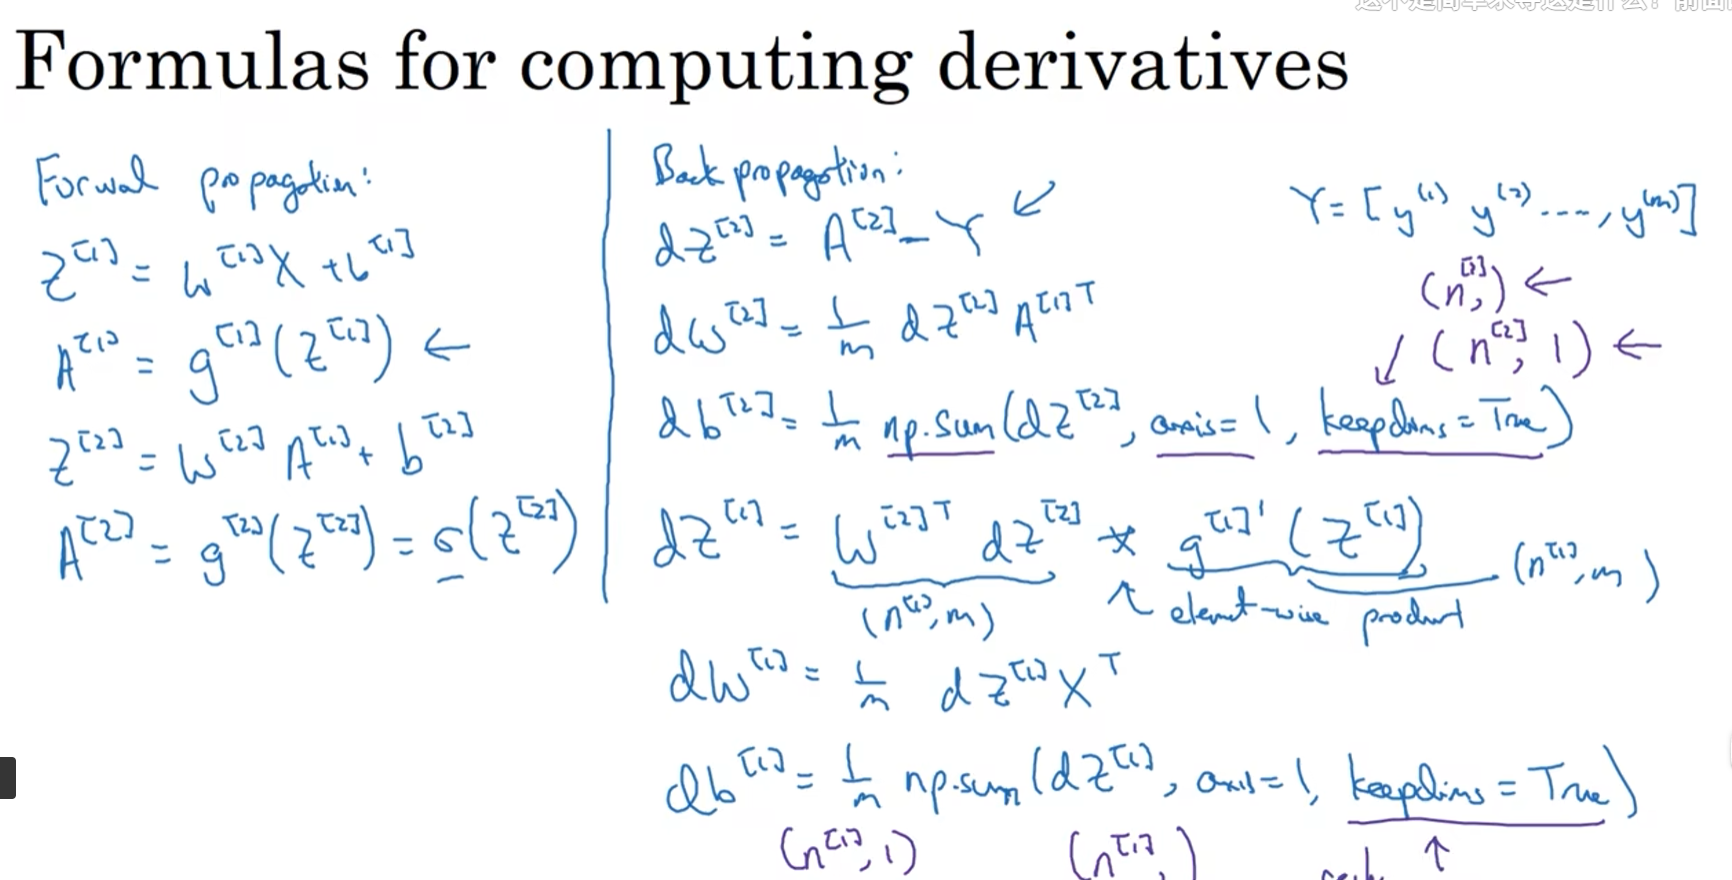 Formulas for computing derivatives
Forwad propagation:
Z^[1] = W^[1] X + b^[1]
A^[1] = g^[1](Z^[1]) ←
Z^[2] = W^[2] A^[1] + b^[2]
A^[2] = g^[2](Z^[2]) = σ(Z^[2])
Back propagation:
dZ^[2] = A^[2] - Y ↙
dW^[2] = 1/m dZ^[2] A^[1]T
db^[2] = 1/m np.sum(dZ^[2], axis=1, keepdims=True)
dZ^[1] = W^[2]T dZ^[2] * g^[1]'(Z^[1])
(n^[1], m) ↑ element-wise product (n^[1], m)
dW^[1] = 1/m dZ^[1] X^T
db^[1] = 1/m np.sum(dZ^[1], axis=1, keepdims=True)
(n^[1], 1) (n^[1],) ↑
Y = [y^(1) y^(2) ...., y^(m)]
(n^[2],) ←
↓ (n^[2], 1) ←